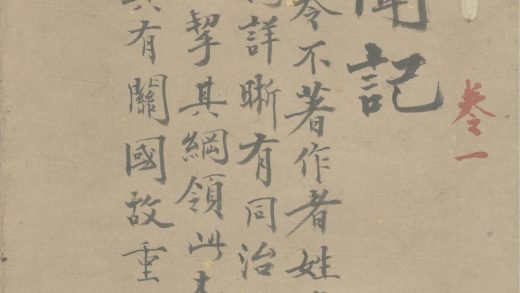 卷一
聞記
不著作者姓
詳晰有同治
挈其綱領此
具有關國故重